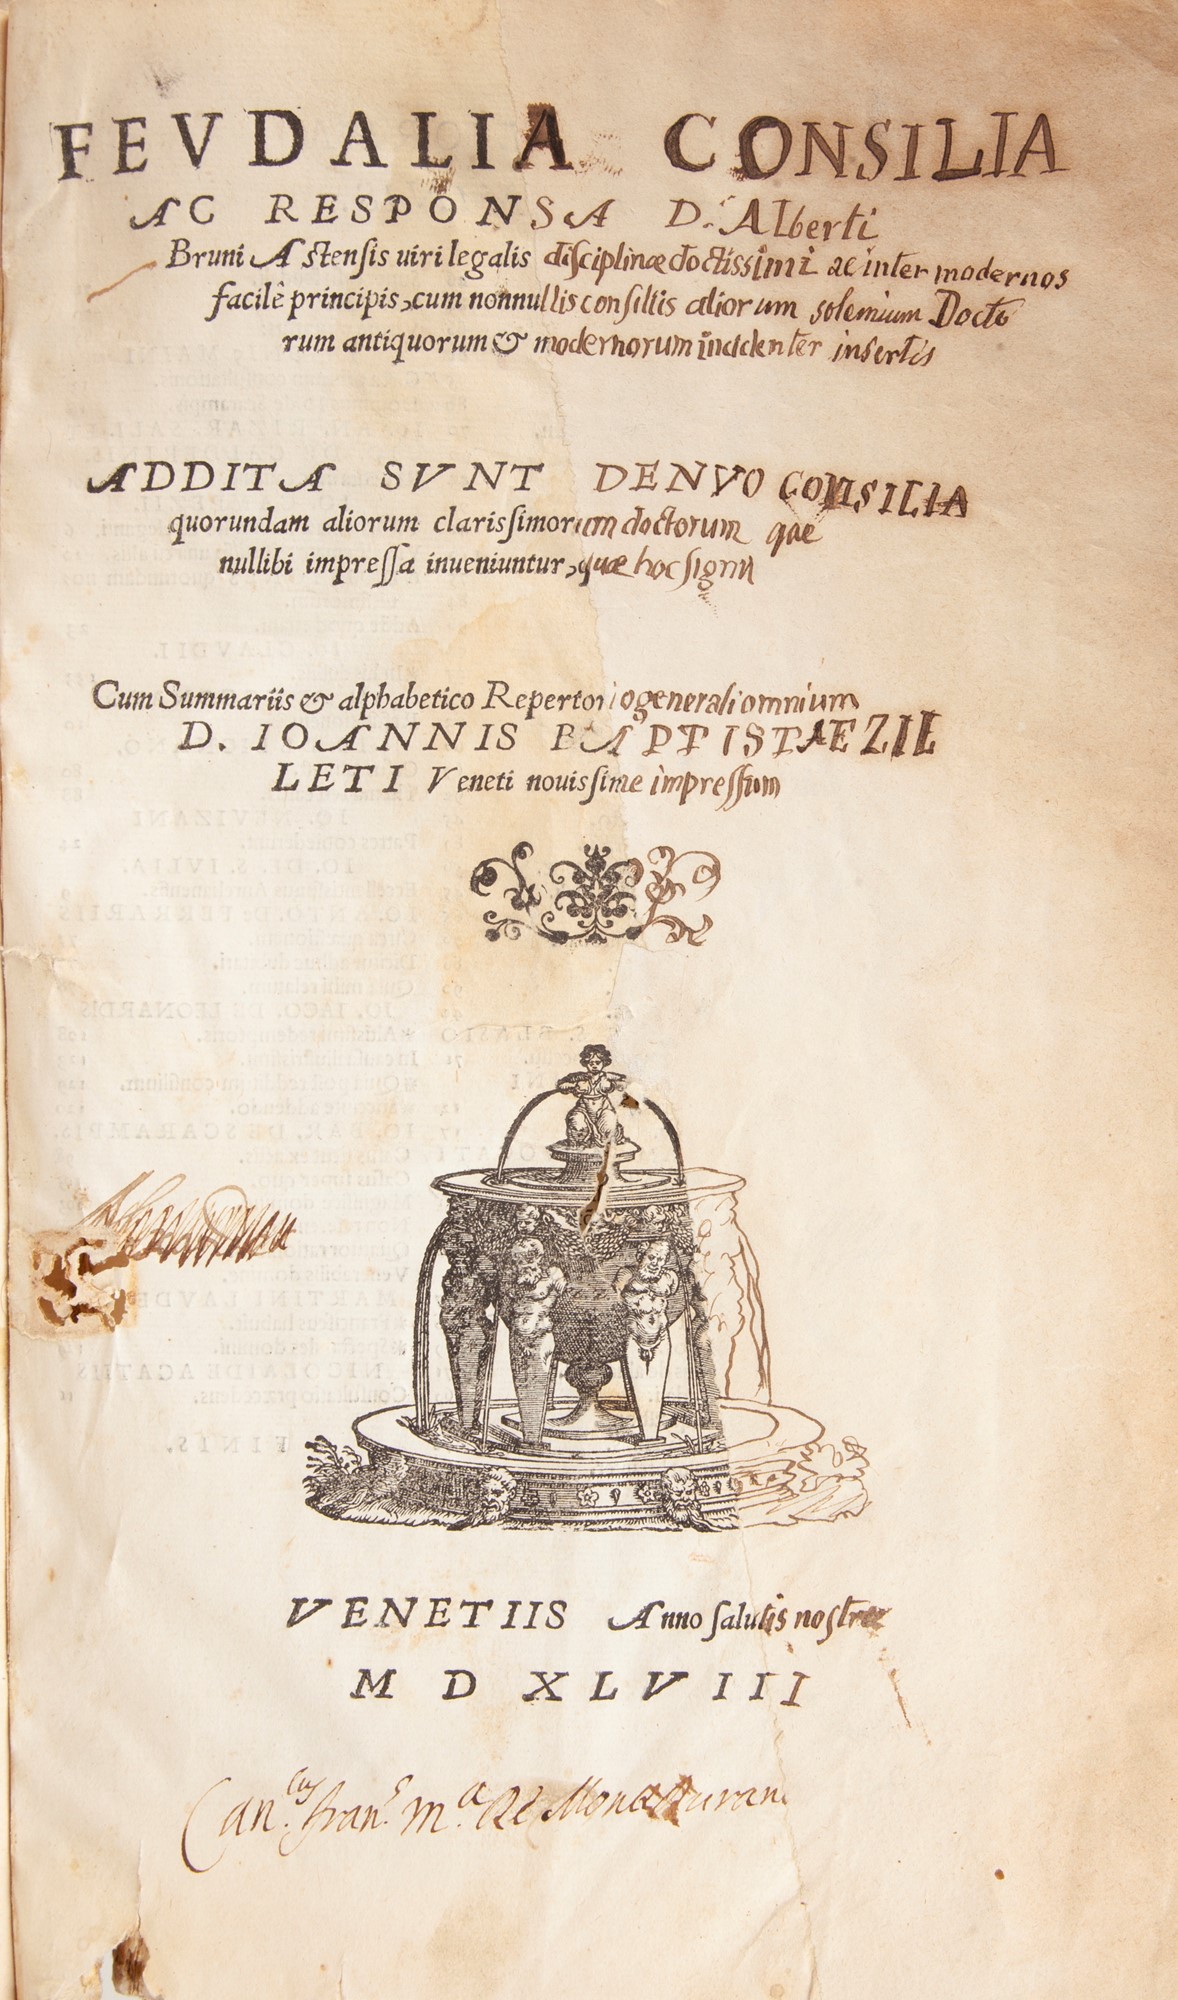 FEVDALIA CONSILIA
AC RESPONSA D. Alberti
Bruni Astensis uiri legalis disciplinæ doctissimi ac inter modernos
facilè principis, cum nonnullis consiliis aliorum solemium Docto
rum antiquorum & modernorum incidenter insertis
ADDITA SVNT DENVO CONSILIA
quorundam aliorum clarissimorum doctorum qae
nullibi impressa inueniuntur, quæ hoc signn
Cum Summariis & alphabetico Repertorio generali omnium
D. IOANNIS BAPTISTAE ZIL
LETI Veneti nouissime impressum
VENETIIS Anno salutis nostræ
M D XLVIII
Can.cus Fran.s M.a De